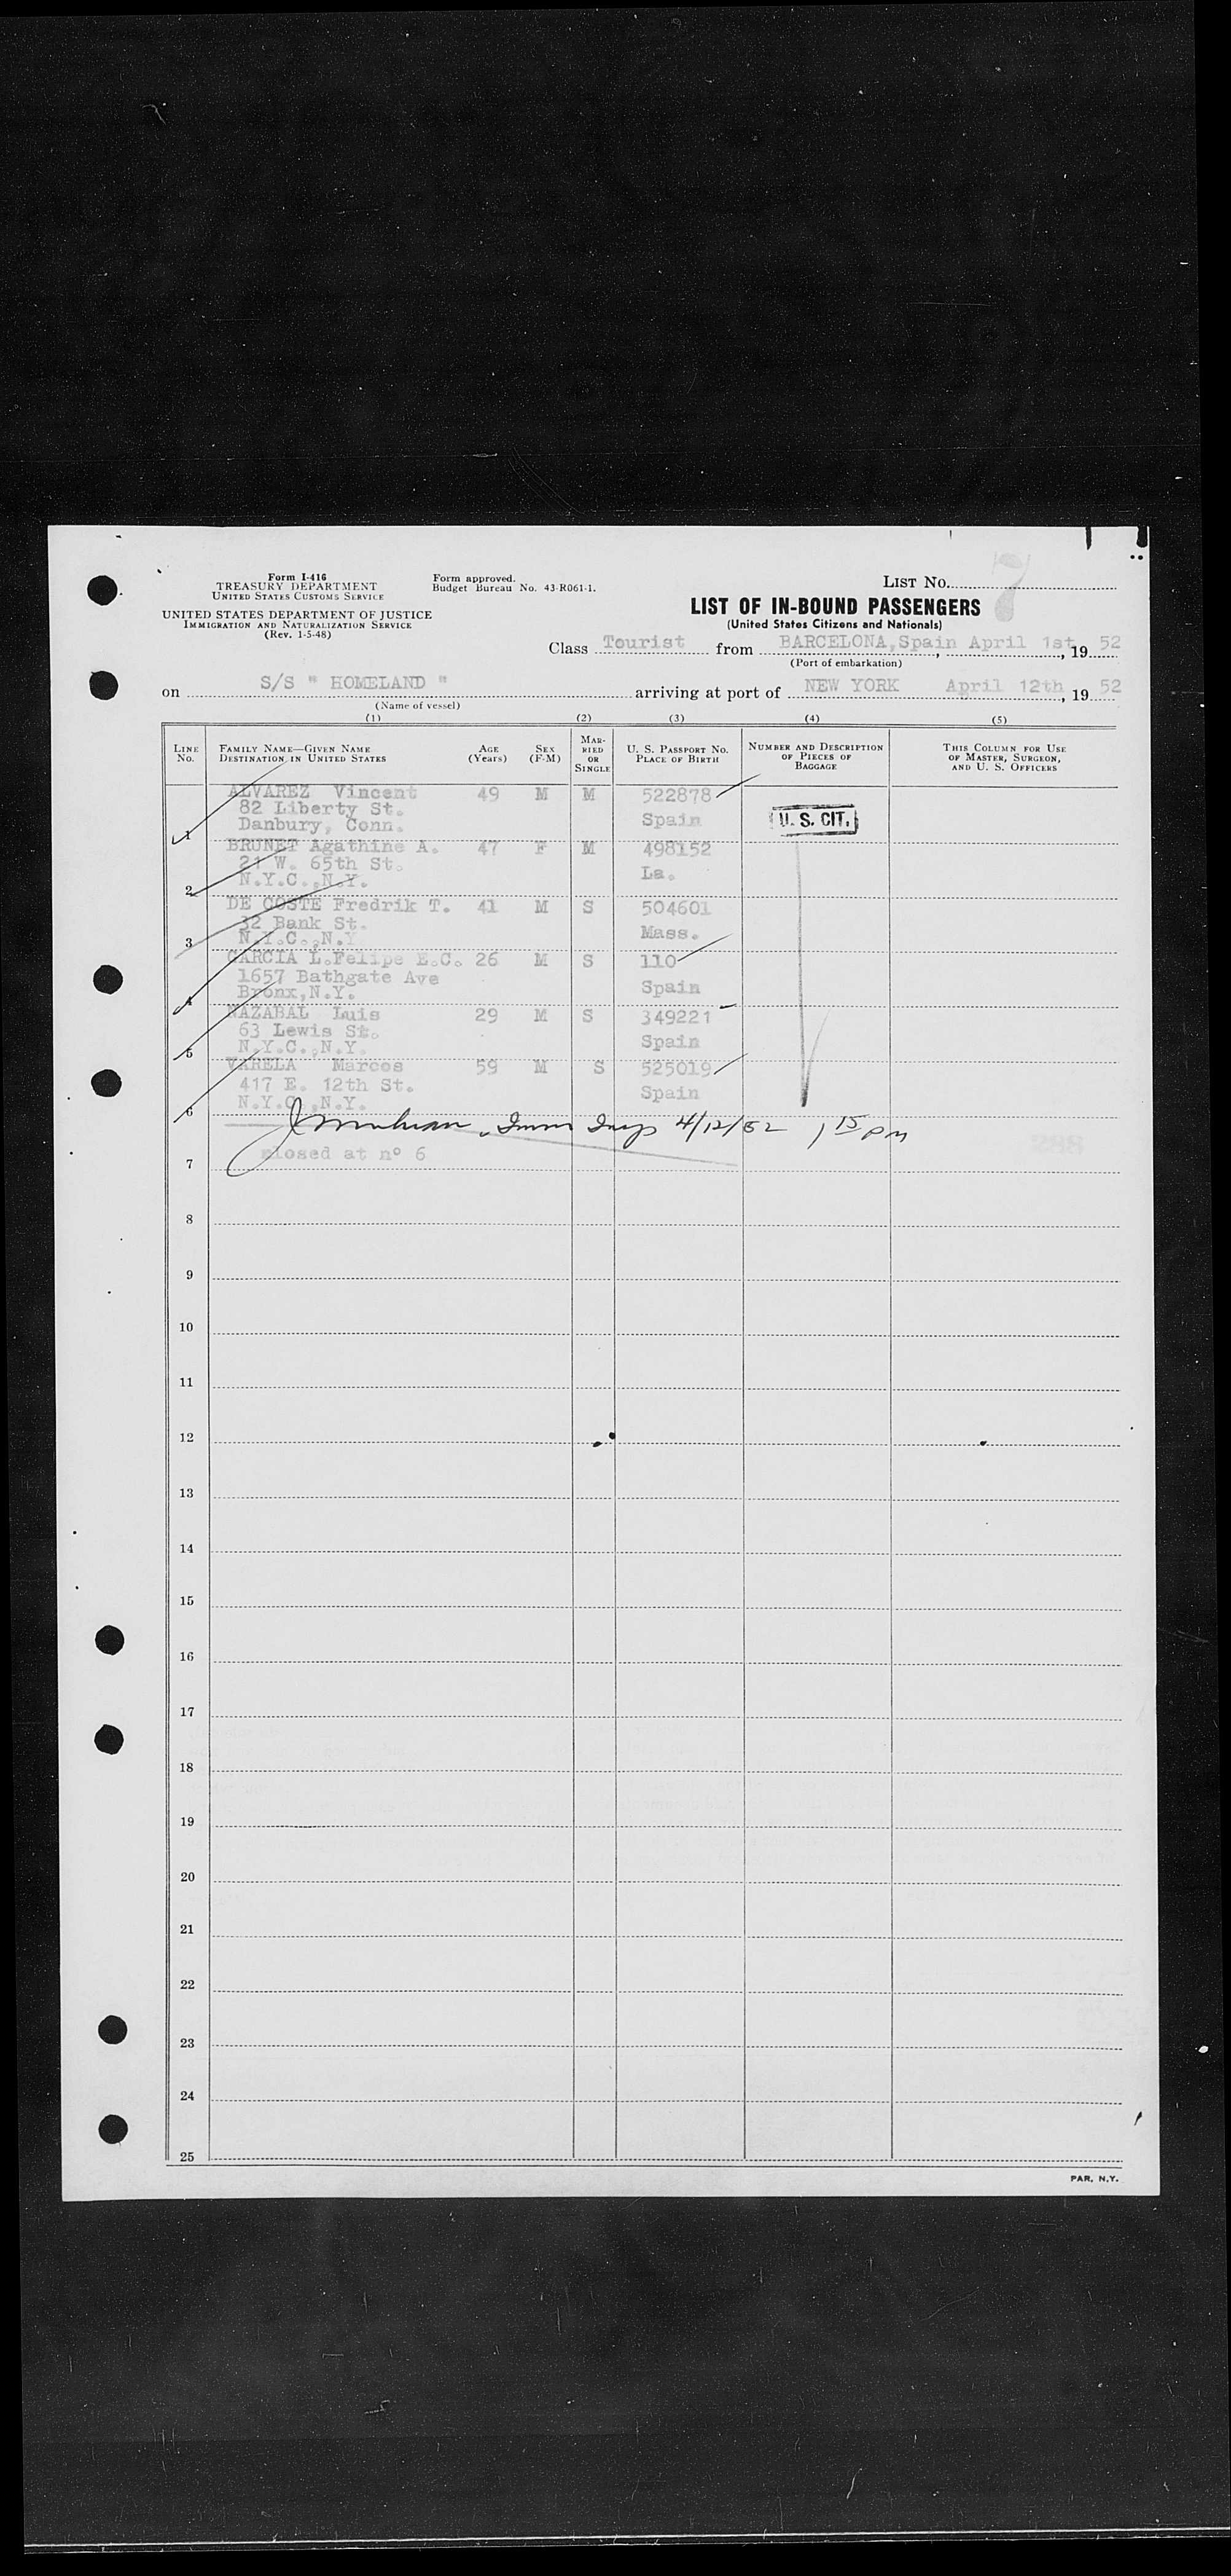 Form I-416
TREASURY DEPARTMENT
UNITED STATES CUSTOMS SERVICE
UNITED STATES DEPARTMENT OF JUSTICE
IMMIGRATION AND NATURALIZATION SERVICE
(Rev. 1-5-48)
Form approved.
Budget Bureau No. 43-R061-1.
LIST NO. 7
LIST OF IN-BOUND PASSENGERS
(United States Citizens and Nationals)
Class Tourist from BARCELONA, Spain, April 1st, 19 52
(Port of embarkation)
on S/S " HOMELAND " arriving at port of NEW YORK April 12th, 19 52
(Name of vessel)
(1) (2) (3) (4) (5)
LINE NO. FAMILY NAME—GIVEN NAME DESTINATION IN UNITED STATES AGE (Years) SEX (F-M) MARRIED OR SINGLE U. S. PASSPORT NO. PLACE OF BIRTH NUMBER AND DESCRIPTION OF PIECES OF BAGGAGE THIS COLUMN FOR USE OF MASTER, SURGEON, AND U. S. OFFICERS
ALVAREZ Vincent 49 M M 522878
82 Liberty St. Spain U. S. CIT.
1 Danbury, Conn.
BRUNET Agathine A. 47 F M 498152
21 W. 65th St. La.
2 N.Y.C.,N.Y.
DE COSTE Fredrik T. 41 M S 504601
32 Bank St. Mass.
3 N.Y.C.,N.Y
GARCIA L.Felipe E.C. 26 M S 110
1657 Bathgate Ave Spain
4 Bronx,N.Y.
NAZABAL Luis 29 M S 349221
63 Lewis St. Spain
5 N.Y.C.,N.Y.
VARELA Marcos 59 M S 525019
417 E. 12th St. Spain
6 N.Y.C.,N.Y.
Imm Insp 4/12/52 1 15 PM
7 closed at nº 6
8
9
10
11
12
13
14
15
16
17
18
19
20
21
22
23
24
25
PAR, N.Y.